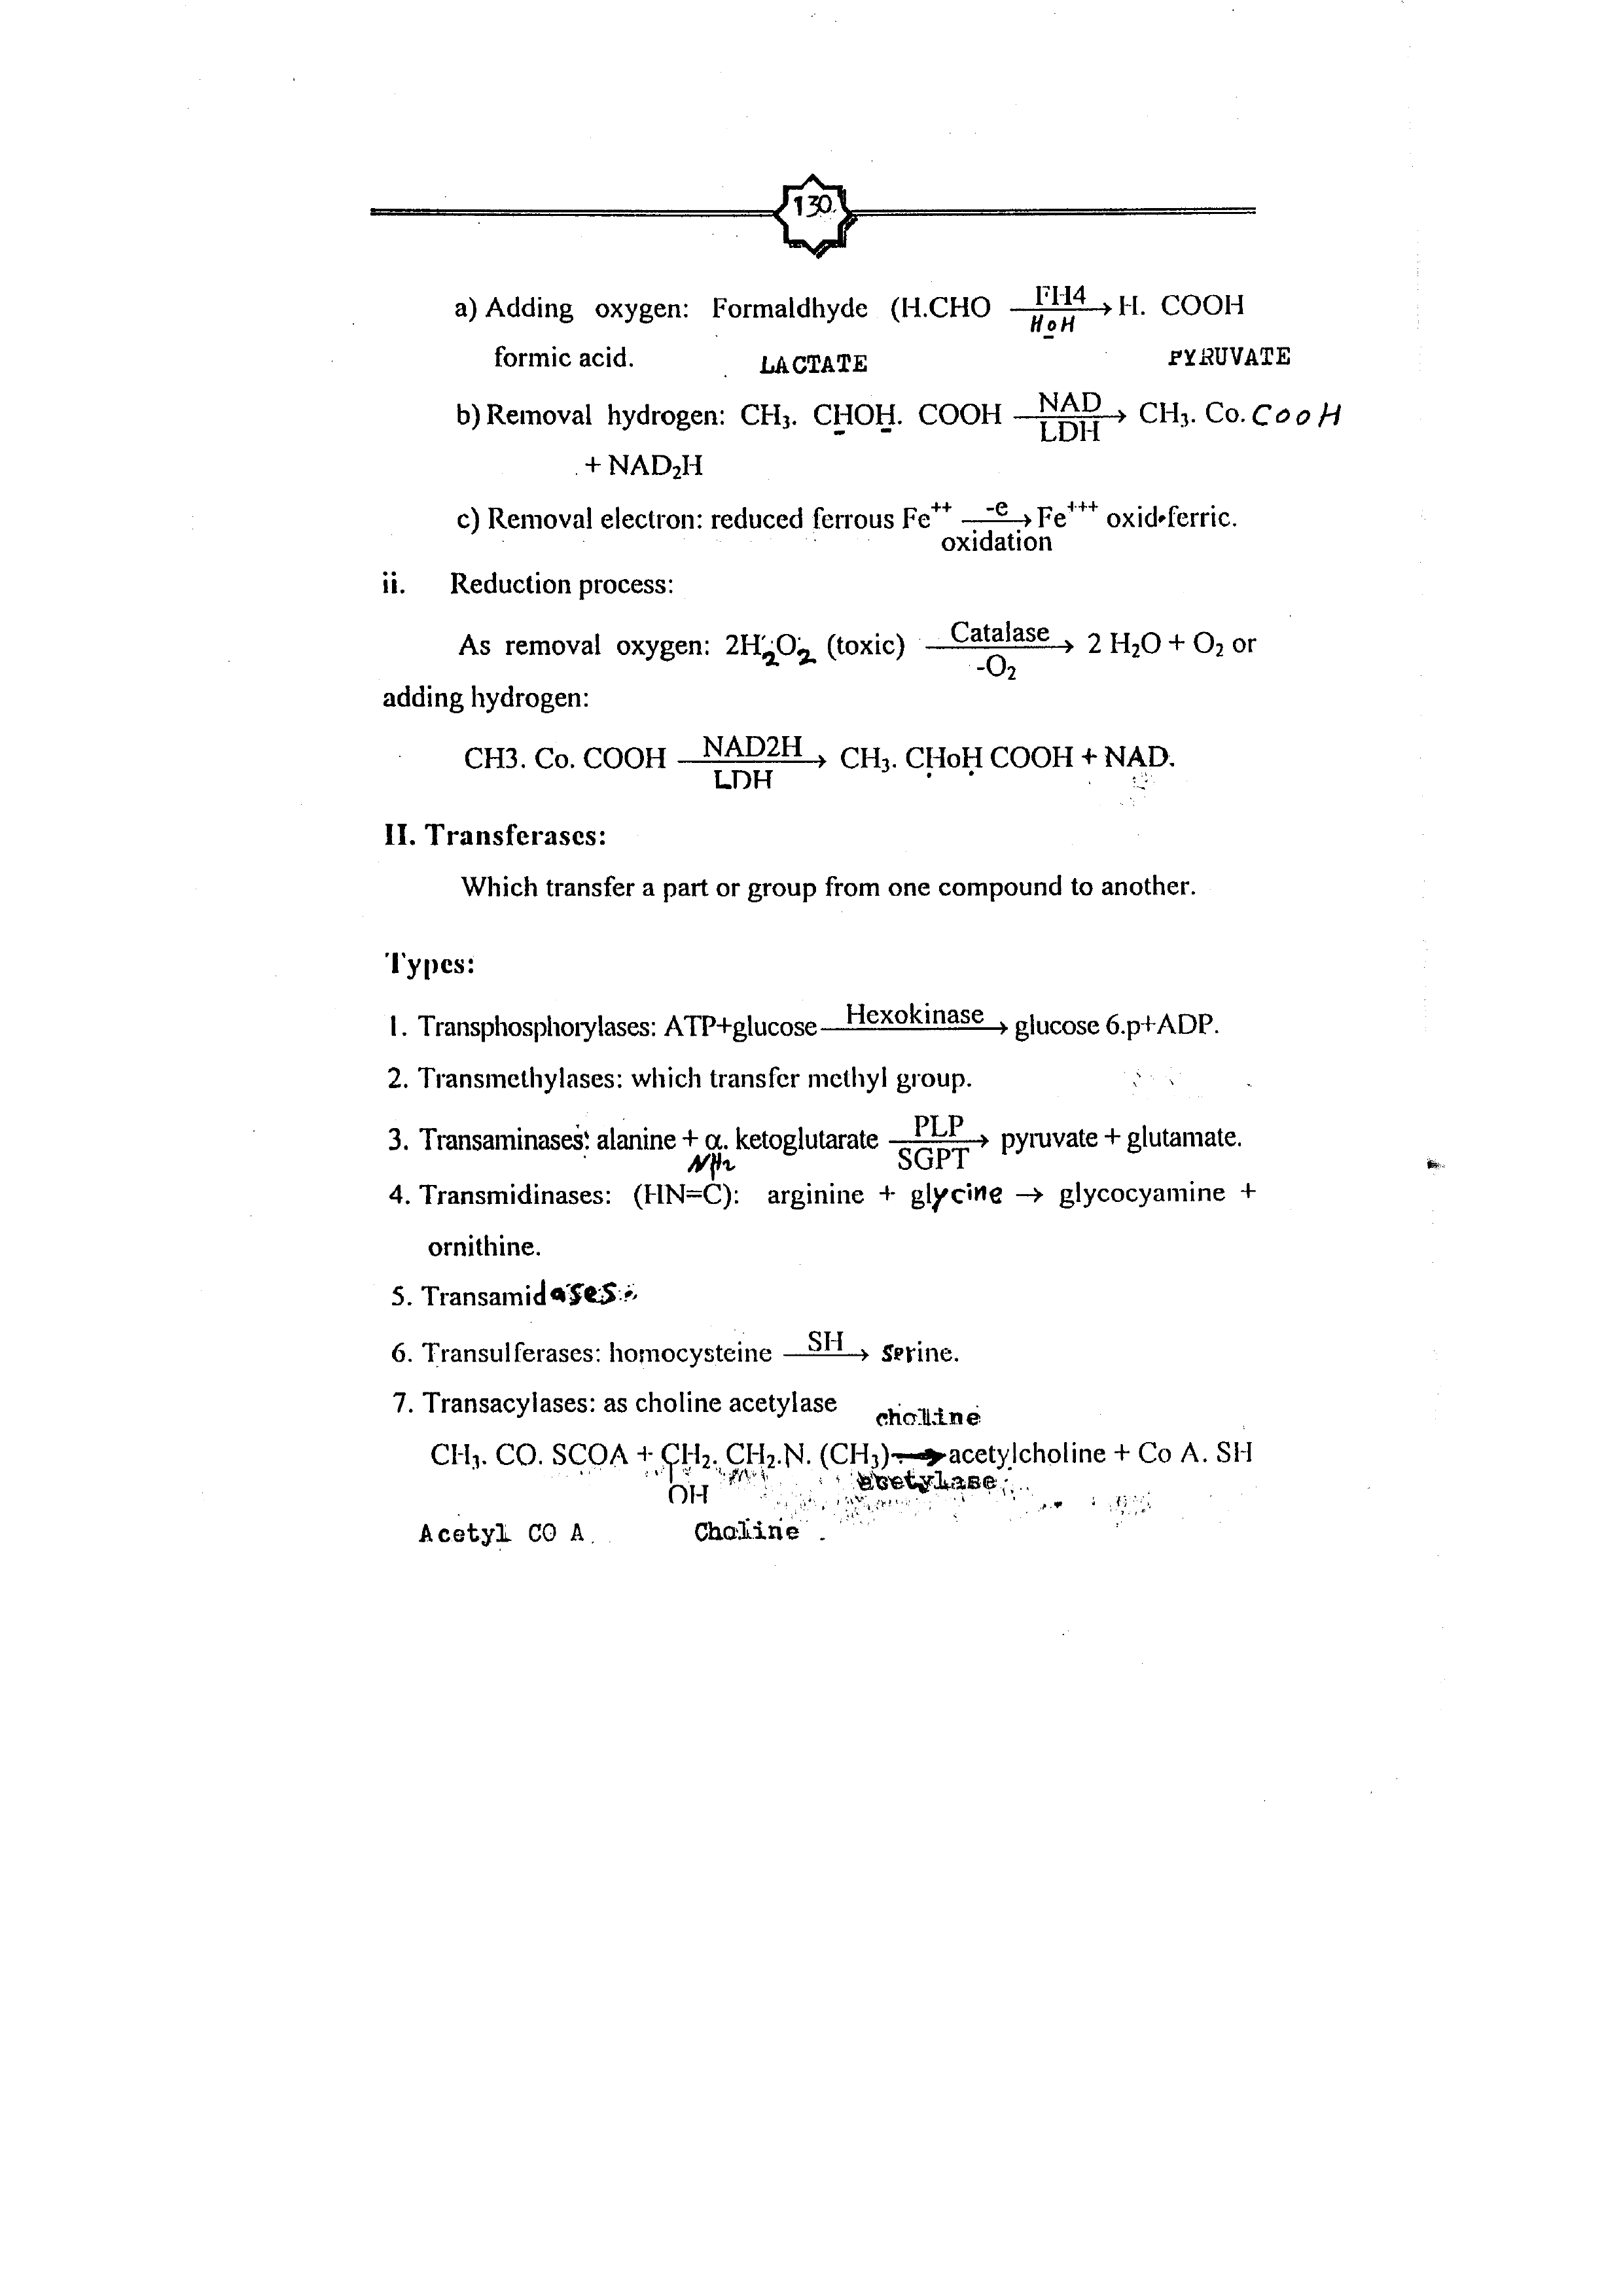 130
a) Adding oxygen: Formaldhyde (H.CHO —FH4/HOH→ H. COOH
formic acid. LACTATE PYRUVATE
b) Removal hydrogen: CH₃. CHOH. COOH —NAD/LDH→ CH₃. Co. COOH
+ NAD₂H
c) Removal electron: reduced ferrous Fe⁺⁺ —-e→ Fe⁺⁺⁺ oxid.ferric.
oxidation
ii. Reduction process:
As removal oxygen: 2H₂O₂ (toxic) —Catalase/-O₂→ 2 H₂O + O₂ or
adding hydrogen:
CH3. Co. COOH —NAD2H/LDH→ CH₃. CHoH COOH + NAD.
II. Transferases:
Which transfer a part or group from one compound to another.
Types:
1. Transphosphorylases: ATP+glucose —Hexokinase→ glucose 6.p+ADP.
2. Transmethylases: which transfer methyl group.
3. Transaminases: alanine + α. ketoglutarate —PLP/SGPT→ pyruvate + glutamate.
NH2
4. Transmidinases: (HN=C): arginine + glycine → glycocyamine +
ornithine.
5. Transamidases:
6. Transulferases: homocysteine —SH→ serine.
7. Transacylases: as choline acetylase
choline
CH₃. CO. SCOA + CH₂. CH₂.N. (CH₃) → acetylcholine + Co A. SH
acetylase
OH
Acetyl CO A. Choline .